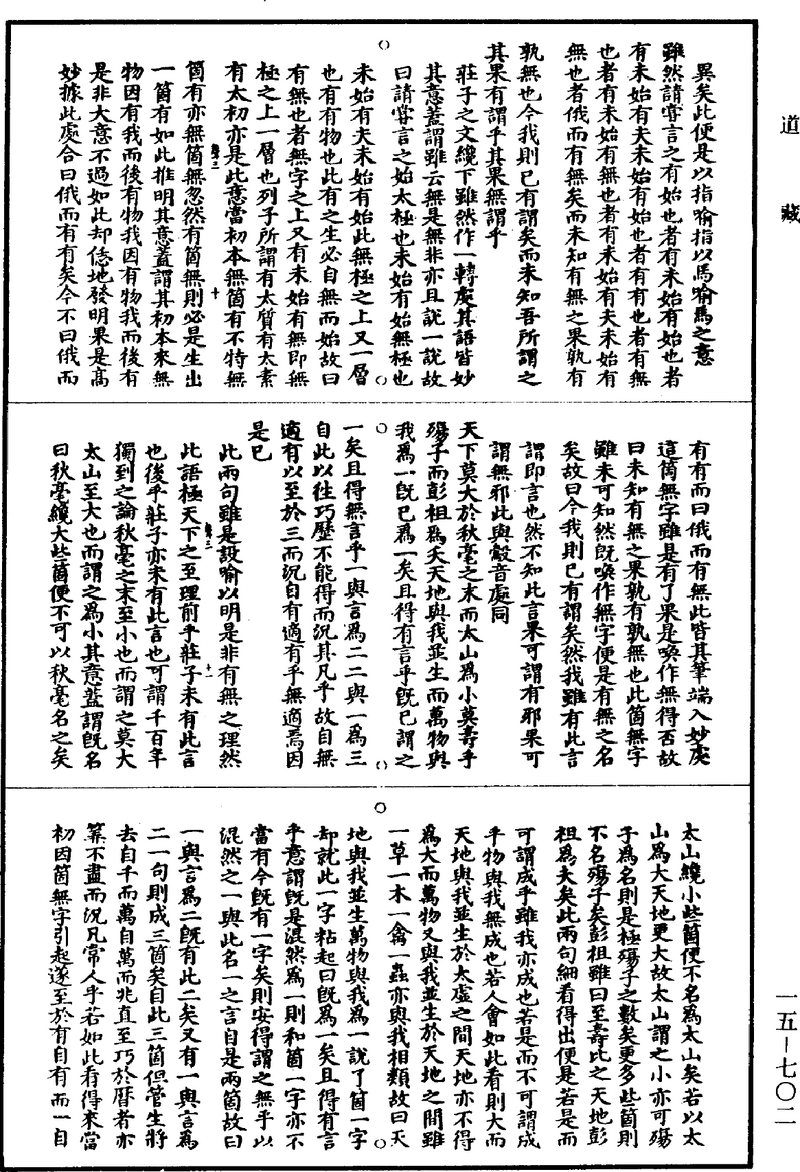 道藏
異矣此便是以指喻指以馬喻馬之意
雖然請嘗言之有始也者有未始有始也者
有未始有夫未始有始也者有有也者有無
也者有未始有無也者有未始有夫未始有
無也者俄而有無矣而未知有無之果孰有
孰無也今我則已有謂矣而未知吾所謂之
其果有謂乎其果無謂乎
莊子之文纔下雖然作一轉處其語皆妙
其意蓋謂雖云無是無非亦且說一說故
曰請嘗言之始太極也未始有始無極也
未始有夫未始有始此無極之上又一層
也有有物也此有之生必自無而始故曰
有無也者無字之上又有未始有無即無
極之上一層也列子所謂有太質有太素
有太初亦是此意當初本無箇有不特無
十
箇有亦無箇無忽然有箇無則必是生出
一箇有如此推明其意蓋謂其初本來無
物因有我而後有物我因有物我而後有
是非大意不過如此却恁地發明果是高
妙據此處合曰俄而有有矣今不曰俄而
有有而曰俄而有無此皆其筆端入妙處
這箇無字雖是有了果是喚作無得否故
曰未知有無之果孰有孰無也此箇無字
雖未可知然既喚作無字便是有無之名
矣故曰今我則已有謂矣然我雖有此言
謂即言也然不知此言果可謂有邪果可
謂無邪此與鷇音處同
天下莫大於秋毫之末而太山為小莫壽乎
殤子而彭祖為夭天地與我並生而萬物與
我為一既已為一矣且得有言乎既已謂之
一矣且得無言乎一與言為二二與一為三
自此以往巧歷不能得而況其凡乎故自無
適有以至於三而況自有適有乎無適焉因
是已
此兩句雖是設喻以明是非有無之理然
十一
此語極天下之至理前乎莊子未有此言
也後乎莊子亦未有此言也可謂千百年
獨到之論秋毫之末至小也而謂之莫大
太山至大也而謂之為小其意蓋謂既名
曰秋毫纔大些箇便不可以秋毫名之矣
太山纔小些箇便不名為太山矣若以太
山為大天地更大故太山謂之小亦可殤
子為名則是極殤子之數矣更多些箇則
不名殤子矣彭祖雖曰至壽比之天地彭
祖為夭矣此兩句細看得出便是若是而
可謂成乎雖我亦成也若是而不可謂成
乎物與我無成也若人會如此看則大而
天地與我並生於太虛之間天地亦不得
為大而萬物又與我並生於天地之間雖
一草一木一禽一蟲亦與我相類故曰天
地與我並生萬物與我為一說了箇一字
却就此一字粘起曰既為一矣且得有言
乎意謂既是混然為一則和箇一字亦不
當有今既有一字矣則安得謂之無乎以
混然之一與此名一之言自是兩箇故曰
一與言為二既有此二矣又有一與言為
二一句則成三箇矣自此三箇但管生將
去自千而萬自萬而兆直至巧於曆者亦
算不盡而況凡常人乎若如此看得來當
初因箇無字引起遂至於有自有而一自
一五-七〇二